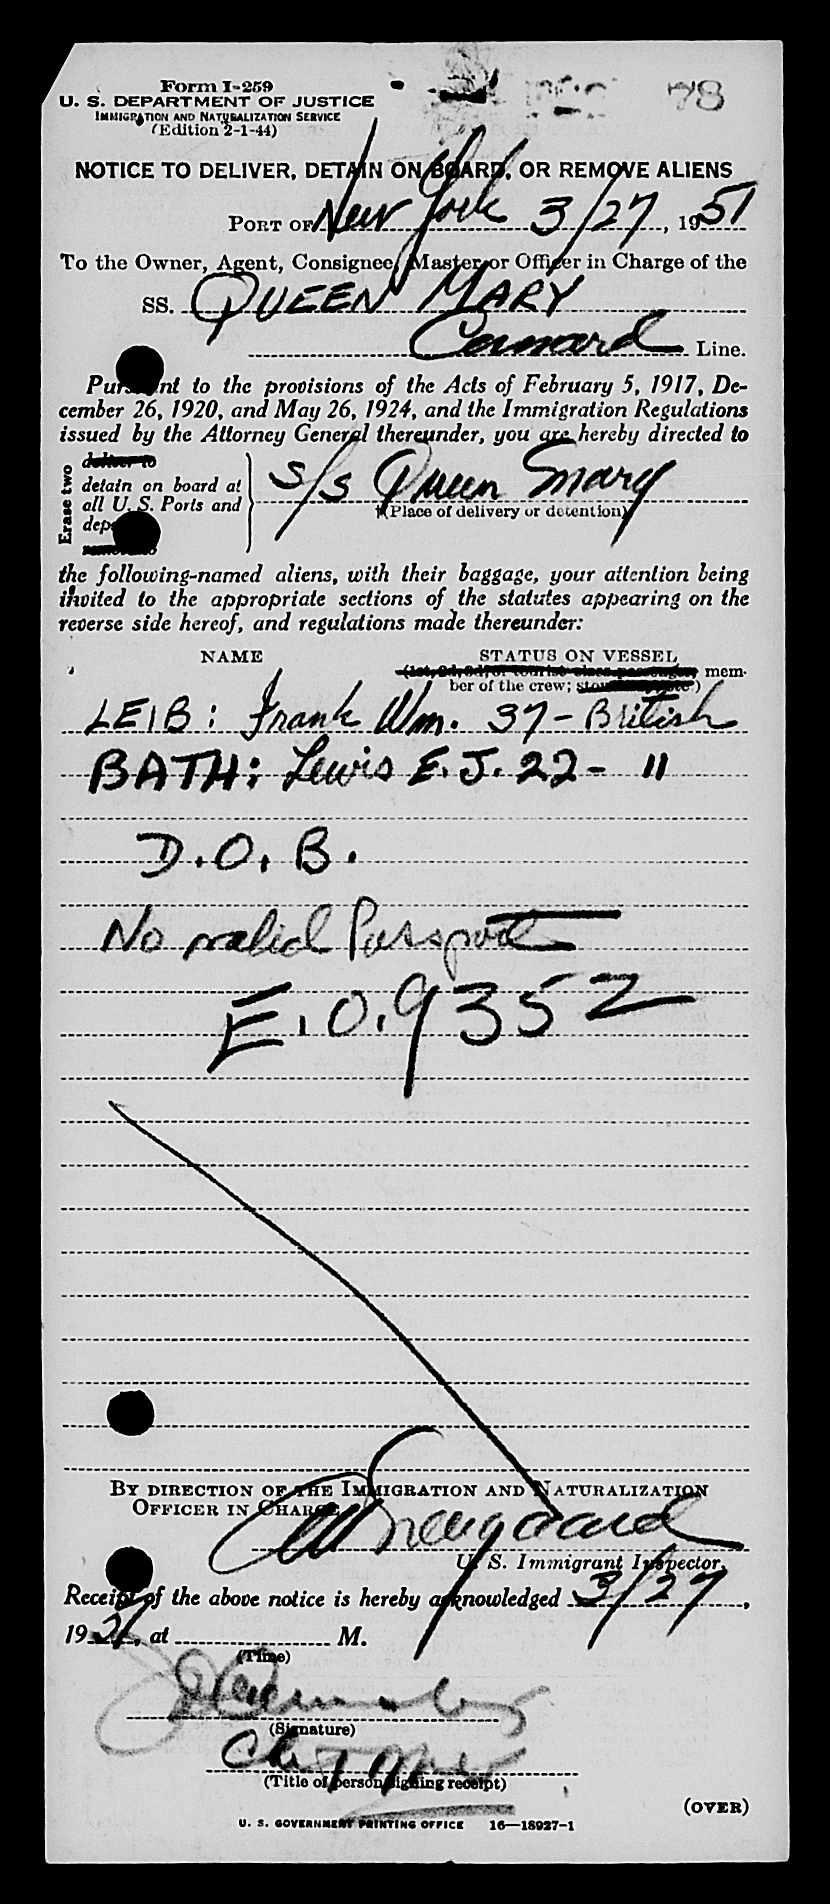 Form I-259
U. S. DEPARTMENT OF JUSTICE
IMMIGRATION AND NATURALIZATION SERVICE
(Edition 2-1-44)
78
NOTICE TO DELIVER, DETAIN ON BOARD, OR REMOVE ALIENS
PORT OF New York 3/27, 1951
To the Owner, Agent, Consignee, Master or Officer in Charge of the
SS. QUEEN MARY
Cunard Line.
Pursuant to the provisions of the Acts of February 5, 1917, De-
cember 26, 1920, and May 26, 1924, and the Immigration Regulations
issued by the Attorney General thereunder, you are hereby directed to
Erase two
deliver to
detain on board at
all U. S. Ports and
s/s Queen Mary
(Place of delivery or detention)
the following-named aliens, with their baggage, your attention being
invited to the appropriate sections of the statutes appearing on the
reverse side hereof, and regulations made thereunder:
NAME STATUS ON VESSEL
mem-
ber of the crew;
LEIB: Frank Wm. 37 - British
BATH: Lewis E. J. 22 - 11
D.O.B.
No valid Passport
E.O. 9352
BY DIRECTION OF THE IMMIGRATION AND NATURALIZATION
OFFICER IN CHARGE
U. S. Immigrant Inspector.
Receipt of the above notice is hereby acknowledged 3/27,
19 51, at M.
(Time)
(Signature)
(Title of person signing receipt)
(OVER)
U. S. GOVERNMENT PRINTING OFFICE 16—18927-1